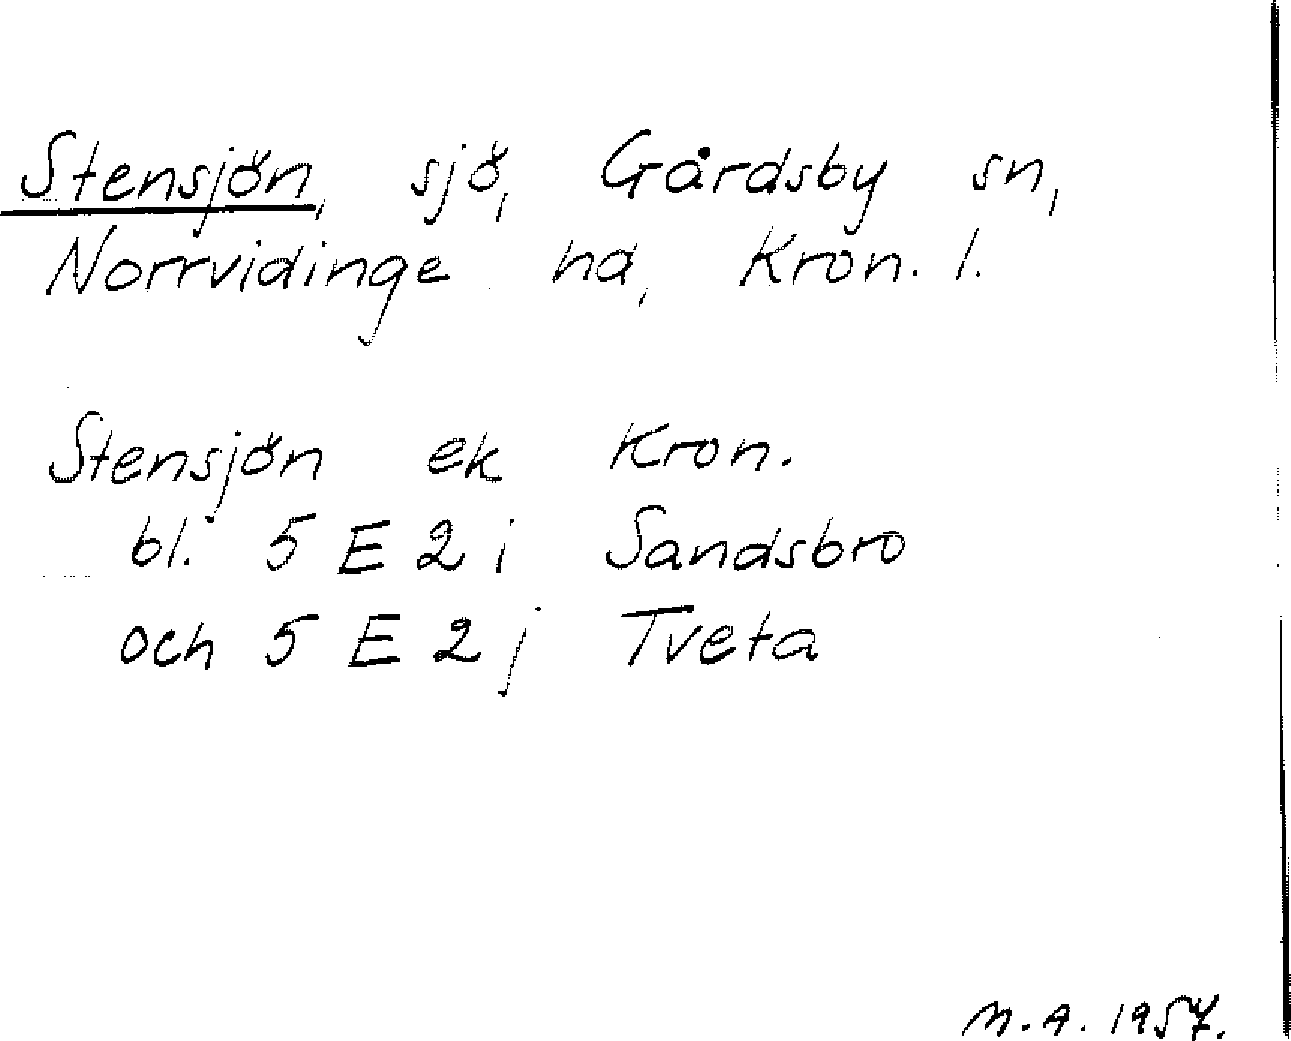 Stensjön, sjö, Gårdsby sn,
Norrvidinge hd, Kron. l.
Stensjön ek Kron.
bl. 5 E 2 i Sandsbro
och 5 E 2 j Tveta
M.A. 1957.